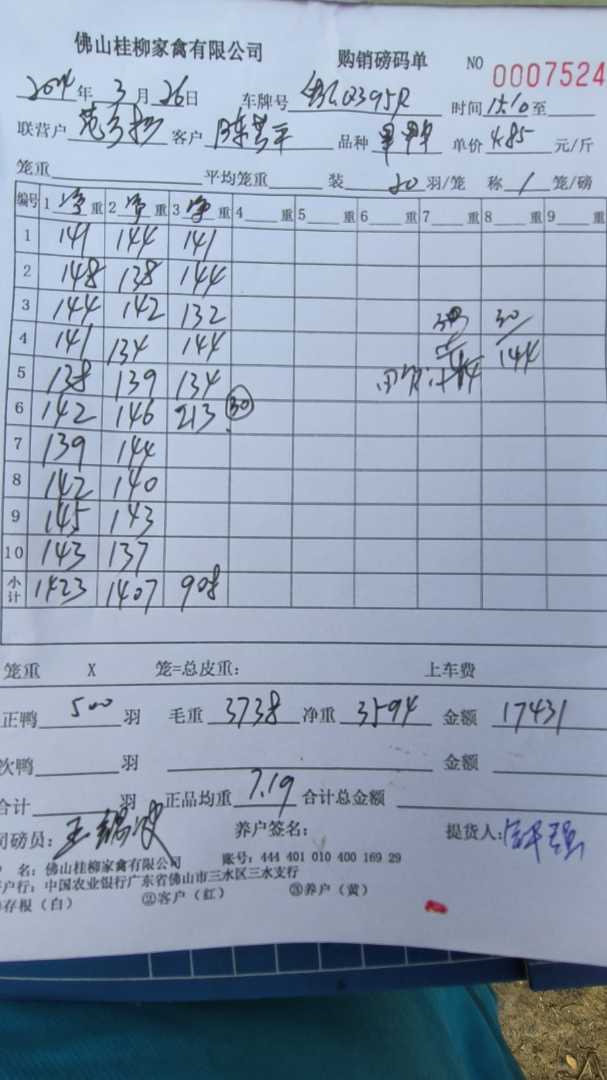 佛山桂柳家禽有限公司 购销磅码单 NO 0007524
年 3 月 26 日 车牌号 时间 15:10 至
联营户 客户 陈 平 品种 单价 4.85 元/斤
笼重 平均笼重 装 20 羽/笼 称 1 笼/磅
编号 1 净 重 2 净 重 3 净 重 4 重 5 重 6 重 7 重 8 重 9 重
1 141 144 141
2 148 138 144
3 144 142 132
4 141 134 144
5 138 139 134
6 142 146 213 30
7 139 144
8 142 140
9 145 143
10 143 137
小计 1423 1407 908
30
144
笼重 X 笼=总皮重: 上车费
正鸭 500 羽 毛重 3738 净重 3594 金额 17431
次鸭 羽 金额
合计 羽 正品均重 7.19 合计总金额
司磅员: 王 养户签名: 提货人:
户 名: 佛山桂柳家禽有限公司 账号: 444 401 010 400 169 29
户行: 中国农业银行广东省佛山市三水区三水支行
存根(白) ②客户(红) ③养户(黄)